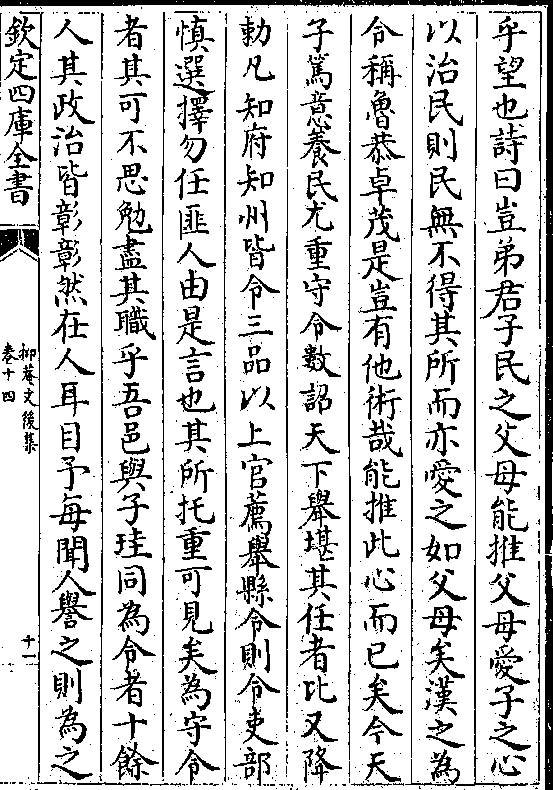 乎望也詩曰豈弟君子民之父母能推父母愛子之心
以治民則民無不得其所而亦愛之如父母矣漢之為
令稱魯恭卓茂是豈有他術哉能推此心而已矣今天
子篤意養民尤重守令數詔天下舉堪其任者比又降
勅凡知府知州皆令三品以上官薦舉縣令則令吏部
慎選擇勿任匪人由是言也其所托重可見矣為守令
者其可不思勉盡其職乎吾邑與子珪同為令者十餘
人其政治皆彰彰然在人耳目予每聞人譽之則為之
欽定四庫全書
抑菴文後集
卷十四
十一